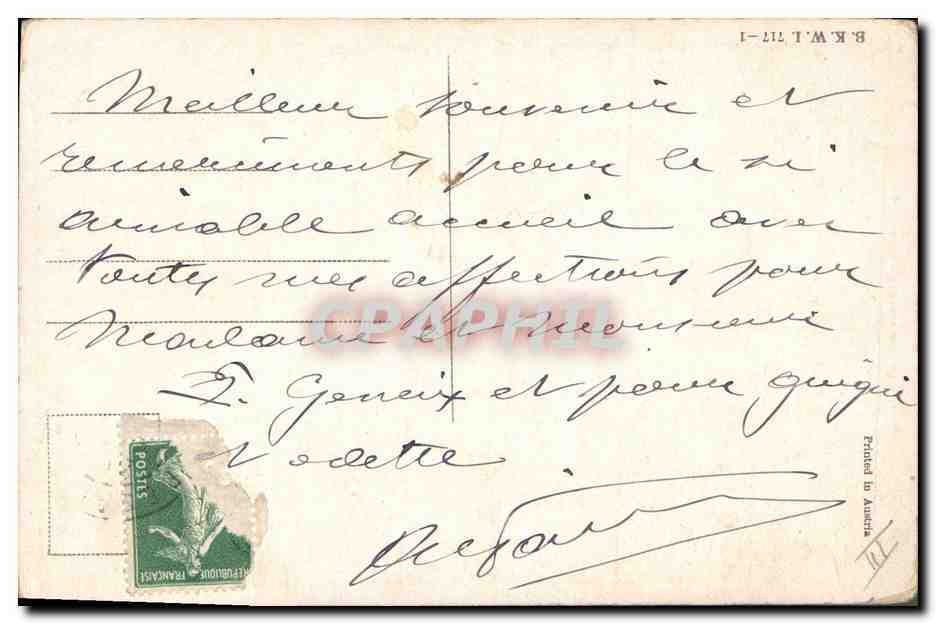 B.K.W.I. 717-1
Meilleur souvenir et
remerciments pour le si
aimable accueil avec
toutes mes affections pour
Madame et Monsieur
Geneix et pour guigui
Odette
CPAPHIL
Printed in Austria
POSTES
REPUBLIQUE FRANÇAISE
III